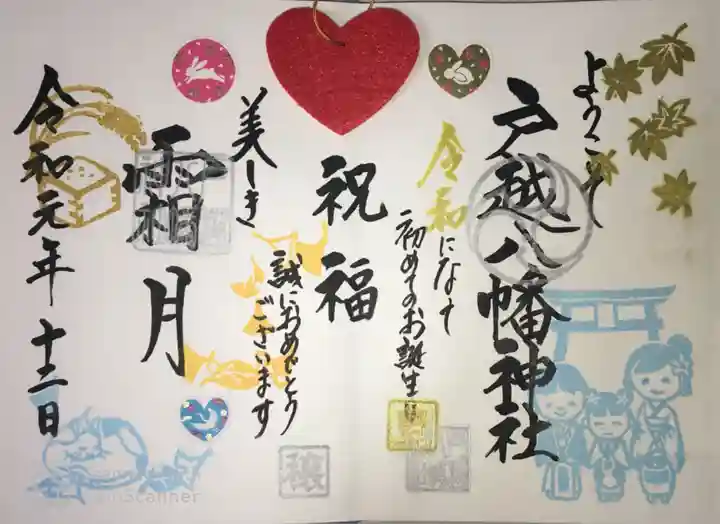 ようこそ
戸越八幡神社
令和になって
初めてのお誕生日
祝福
誠におめでとう
ございます
美しき
霜月
令和元年 十一月
穣
Scanner